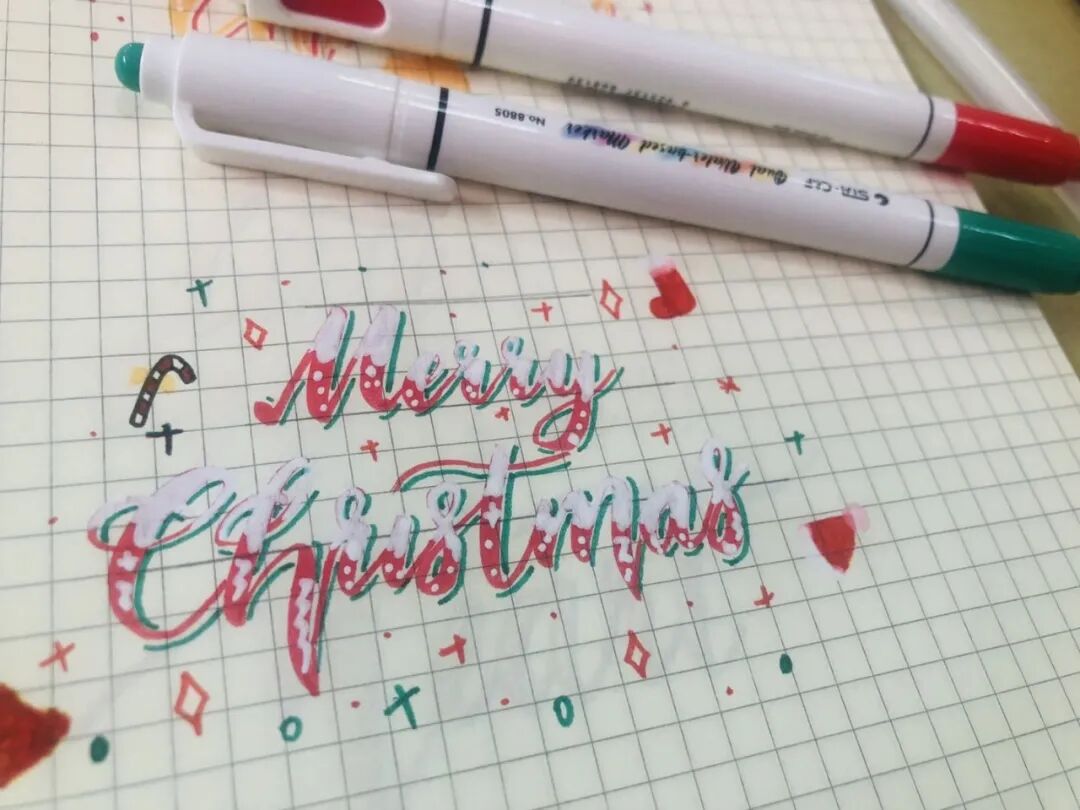 No.8805 Dual Water-based Marker STA·CLT
Merry
Christmas